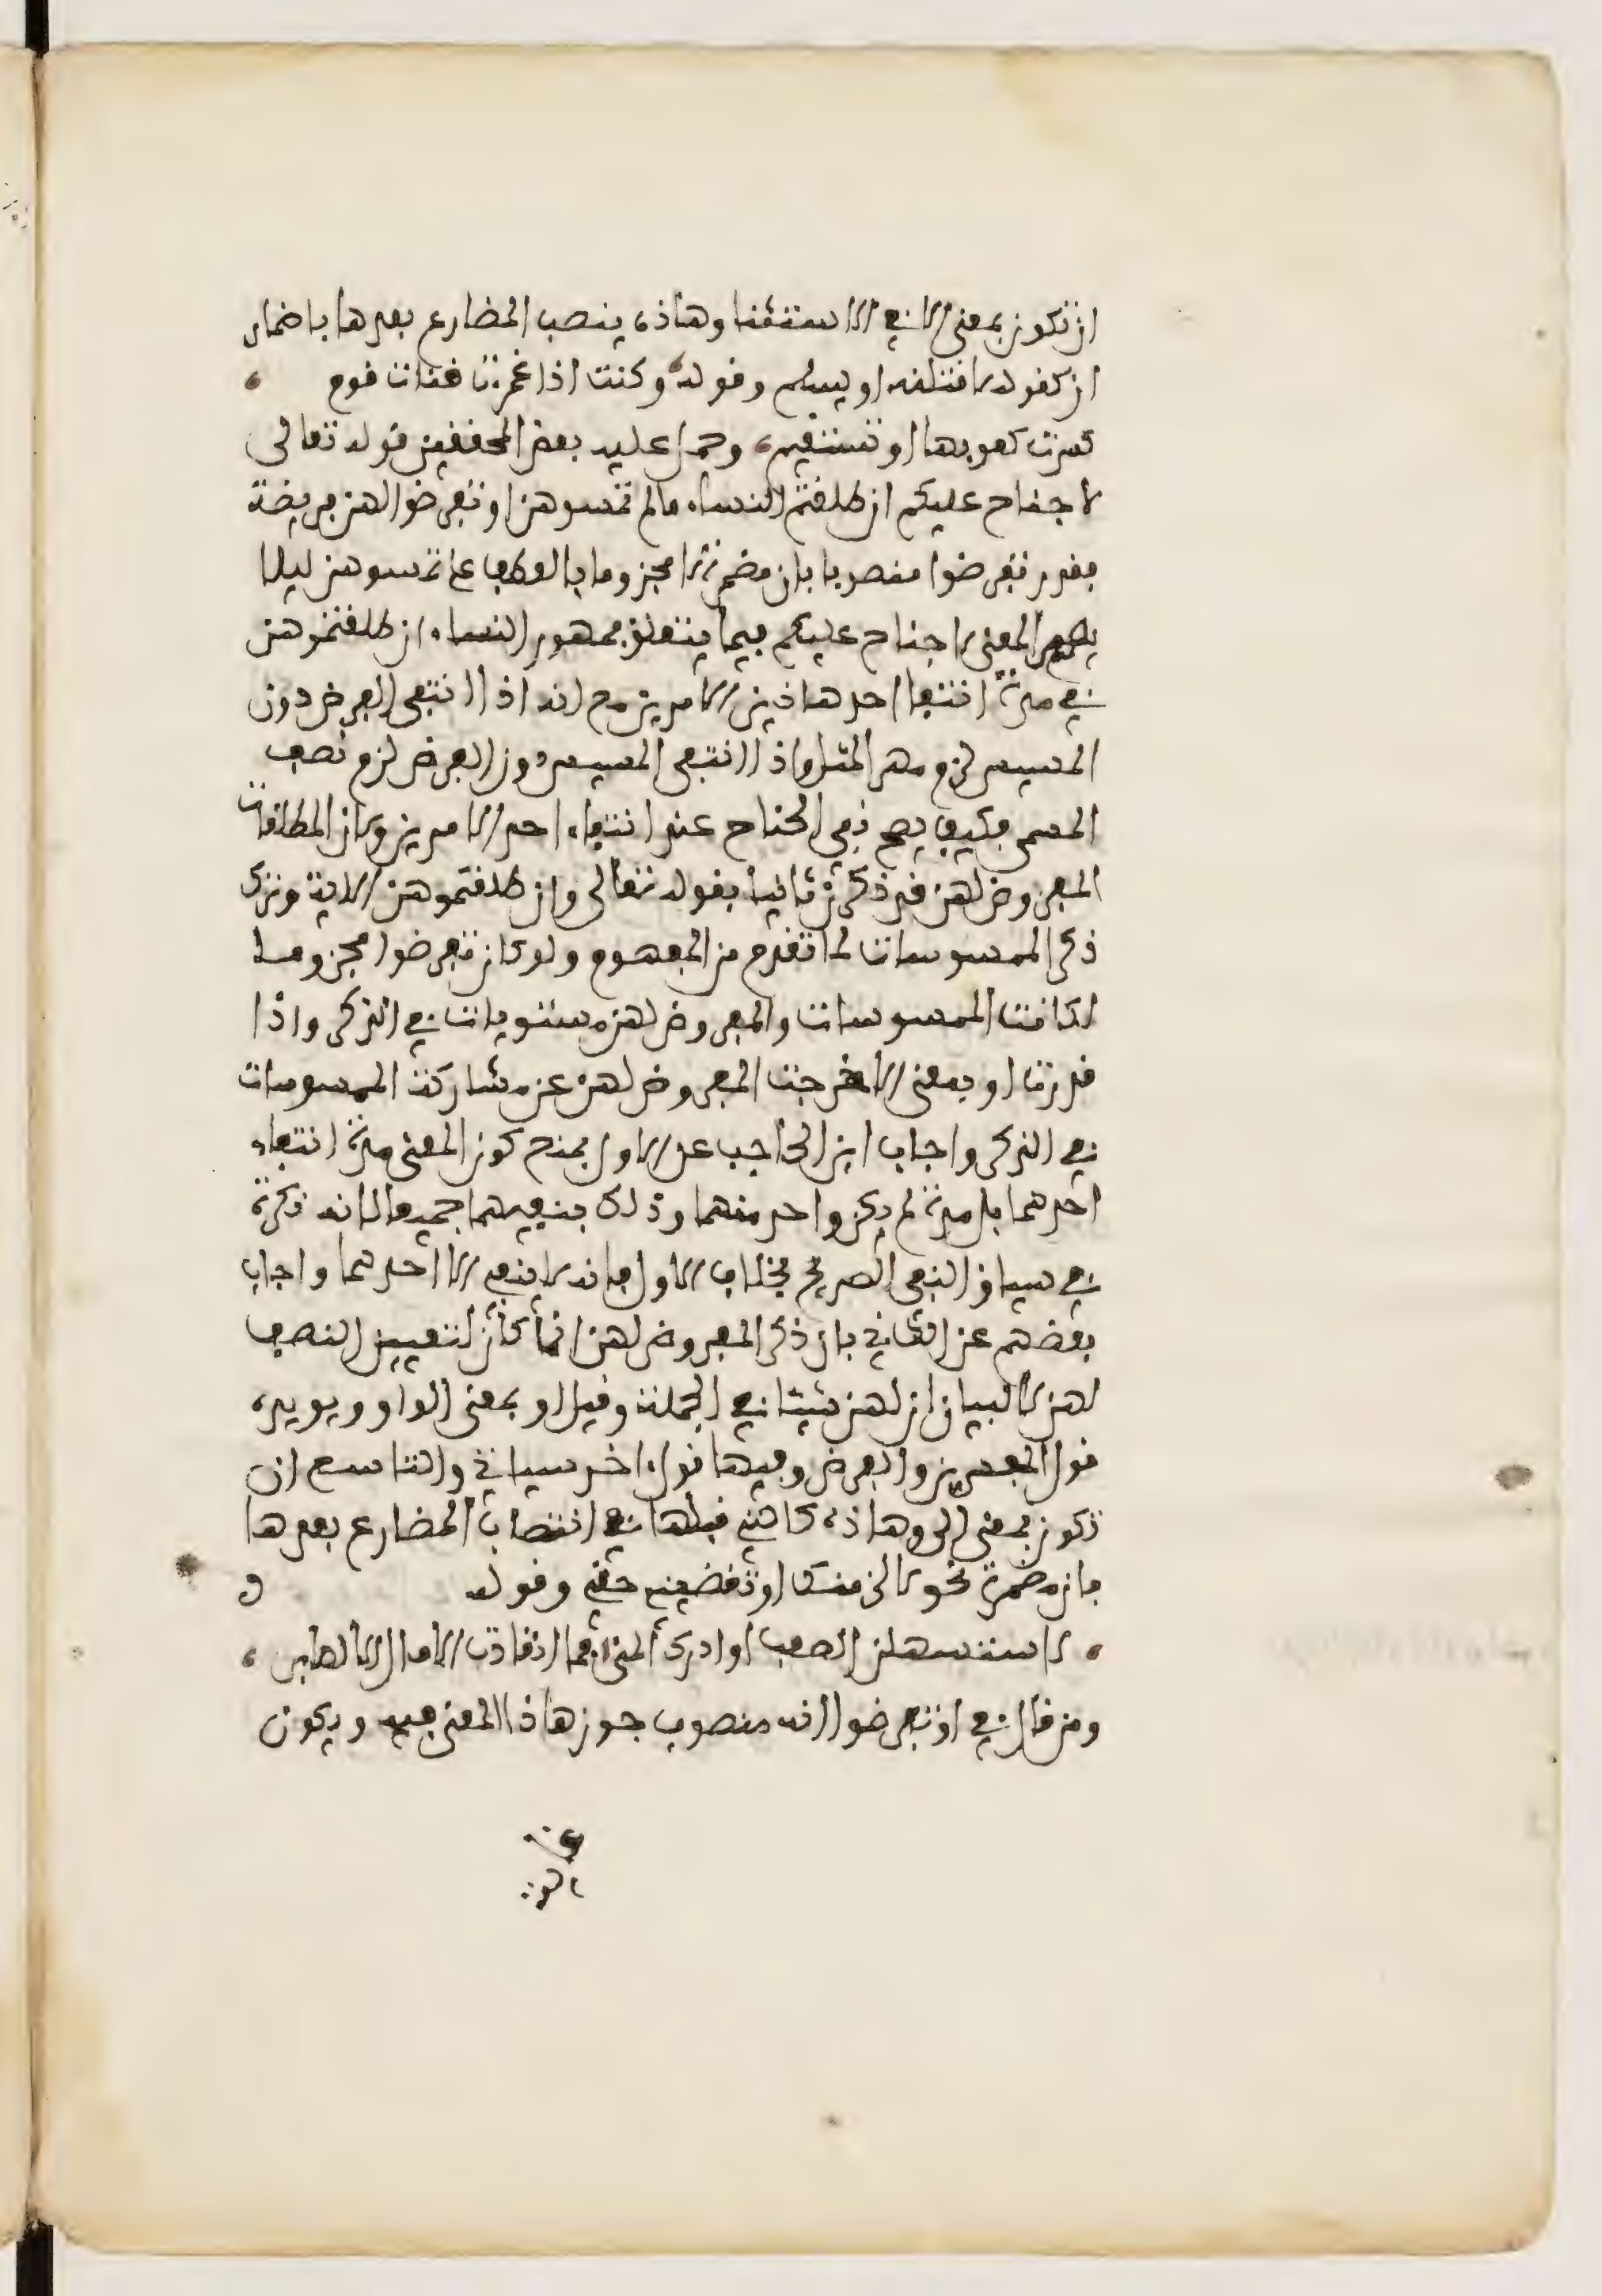 ان تكون بمعنى الا في الاستثنا وهاذه ينصب المضارع بعدها باضمار
ان كقوله لاقتلنه او يسلم وقوله وكنت اذا غمزت قنات قوم
كسرت كعوبها او تستقيم، وحمل عليه بعض المحققين قوله تعالى
لا جناح عليكم ان طلقتم النساء ما لم تمسوهن او تفرضوا لهن فريضة
فقدر تفرضوا منصوبا بان مضمرة لا مجزوما بالعطف على تمسوهن ليلا
يصير المعنى لا جناح عليكم فيما يتعلق بمهور النساء ان طلقتموهن
في مدة انتفا احد هاذين الامرين مع انه اذا انتفى الفرض دون
المسيس لزم مهر المثل واذا انتفى المسيس دون الفرض لزم نصف
المسمى فكيف يصح نفي الجناح عند انتفاء احد الامرين ولان المطلقات
المفروض لهن قد ذكرن ثانيا بقوله تعالى وان طلقتموهن الاية وترك
ذكر الممسوسات لما تقدم من المفهوم ولو كان تفرضوا مجزوما
لكانت الممسوسات والمفروض لهن مستويات في الذكر واذا
قدرت او بمعنى الا خرجت المفروض لهن عن مشاركة الممسوسات
في الذكر واجاب ابن الحاجب عن الاول بمنع كون المعنى مدة انتفاء
احدهما بل مدة لم يكن واحد منهما وذلك بنفيهما جميعا لانه نكرة
في سياق النفي الصريح بخلاف الاول فانه لا ينفي الا احدهما واجاب
بعضهم عن الثاني بان ذكر المفروض لهن انما كان لتعيين النصف
لهن لا لبيان ان لهن شيئا في الجملة وقيل او بمعنى الواو ويويده
قول المفسرين والفرض وفيها قول اخر سياتي والتاسع ان
تكون بمعنى الى وهاذه كالتي قبلها في انتصاب المضارع بعدها
بان مضمرة نحو لالزمنك او تقضيني حقي وقوله
لاستسهلن الصعب او ادرك المنى، فما انقادت الامال الا لصابر،
ومن قال في او تفرضوا انه منصوب جوز هاذا المعنى فيه ويكون